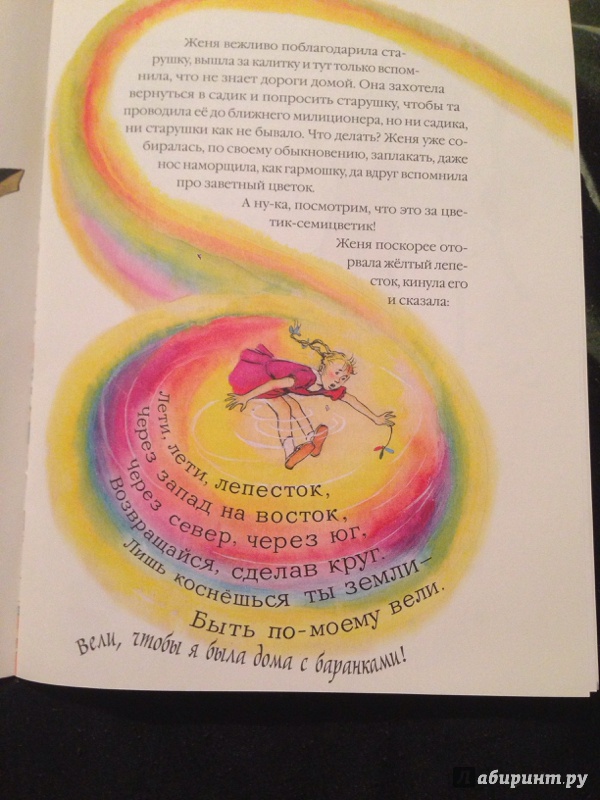 Женя вежливо поблагодарила ста-
рушку, вышла за калитку и тут только вспом-
нила, что не знает дороги домой. Она захотела
вернуться в садик и попросить старушку, чтобы та
проводила её до ближнего милиционера, но ни садика,
ни старушки как не бывало. Что делать? Женя уже со-
биралась, по своему обыкновению, заплакать, даже
нос наморщила, как гармошку, да вдруг вспомнила
про заветный цветок.
А ну-ка, посмотрим, что это за цве-
тик-семицветик!
Женя поскорее ото-
рвала жёлтый лепе-
сток, кинула его
и сказала:
Лети, лети, лепесток,
Через запад на восток,
Через север, через юг,
Возвращайся, сделав круг.
Лишь коснёшься ты земли—
Быть по-моему вели.
Вели, чтобы я была дома с баранками!
Лабиринт.ру